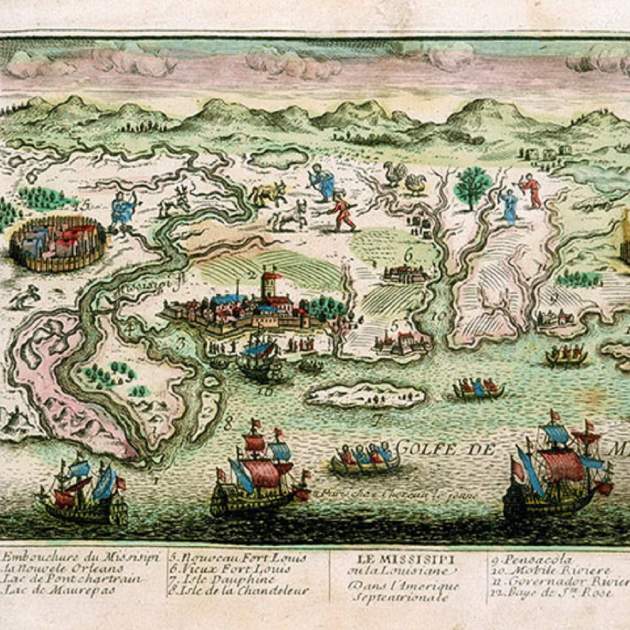 Missisipi fl
GOLFE DE M
A Paris chez Chereau le jeune
Embouchure du Missisipi
la Nouvele Orleans
Lac de Pontchartrain
Lac de Maurepas
5. Nouveau Fort Louis
6. Vieux Fort Louis
7. Isle Dauphine
8. Isle de la Chandeleur
LE MISSISIPI
ou la Louisiane
Dans l'Amerique
Septentrionale
9. Pensacola
10. Mobile Riviere
11. Governador Rivier
12. Baye de Ste. Rose